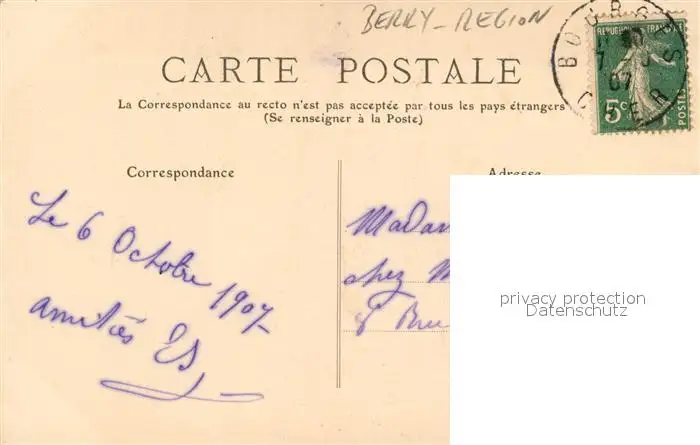 BERRY-REGION
BOURGES
CHER
REPUBLIQUE FRANÇAISE
5c
POSTES
CARTE POSTALE
La Correspondance au recto n'est pas acceptée par tous les pays étrangers
(Se renseigner à la Poste)
Correspondance
Adresse
Le 6 Octobre 1907
amitiés
Madam
chez M
privacy protection
Datenschutz